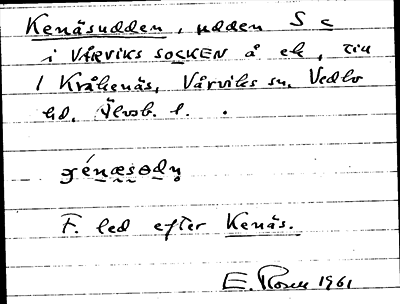 Kenäsudden, udden S c
i VÅRVIKS SOCKEN å ek, till
1 Kråkenäs, Vårviks sn, Vedbo
hd, Älvsb. l.
F. led efter Kenäs.
E. Rosen 1961